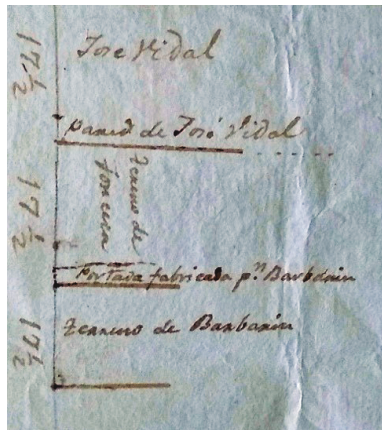 17½
Jose Vidal
pared de José Vidal
17½
terreno de
Portada fabricada pʳ Barbarin
17½
terreno de Barbarin